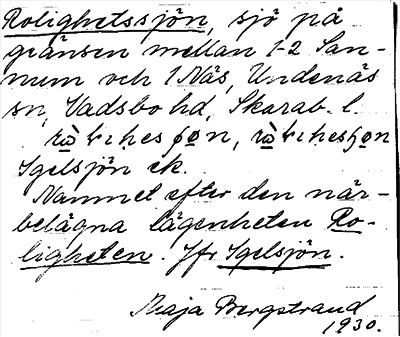 Rolighetssjön, sjö på
gränsen mellan 1-2 San-
num och 1 Näs, Undenäs
sn, Vadsbo hd, Skarab. l.
Igelsjön ek.
Namnet efter den när-
belägna lägenheten Ro-
ligheten. Jfr Igelsjön.
Maja Bergstrand
1930.